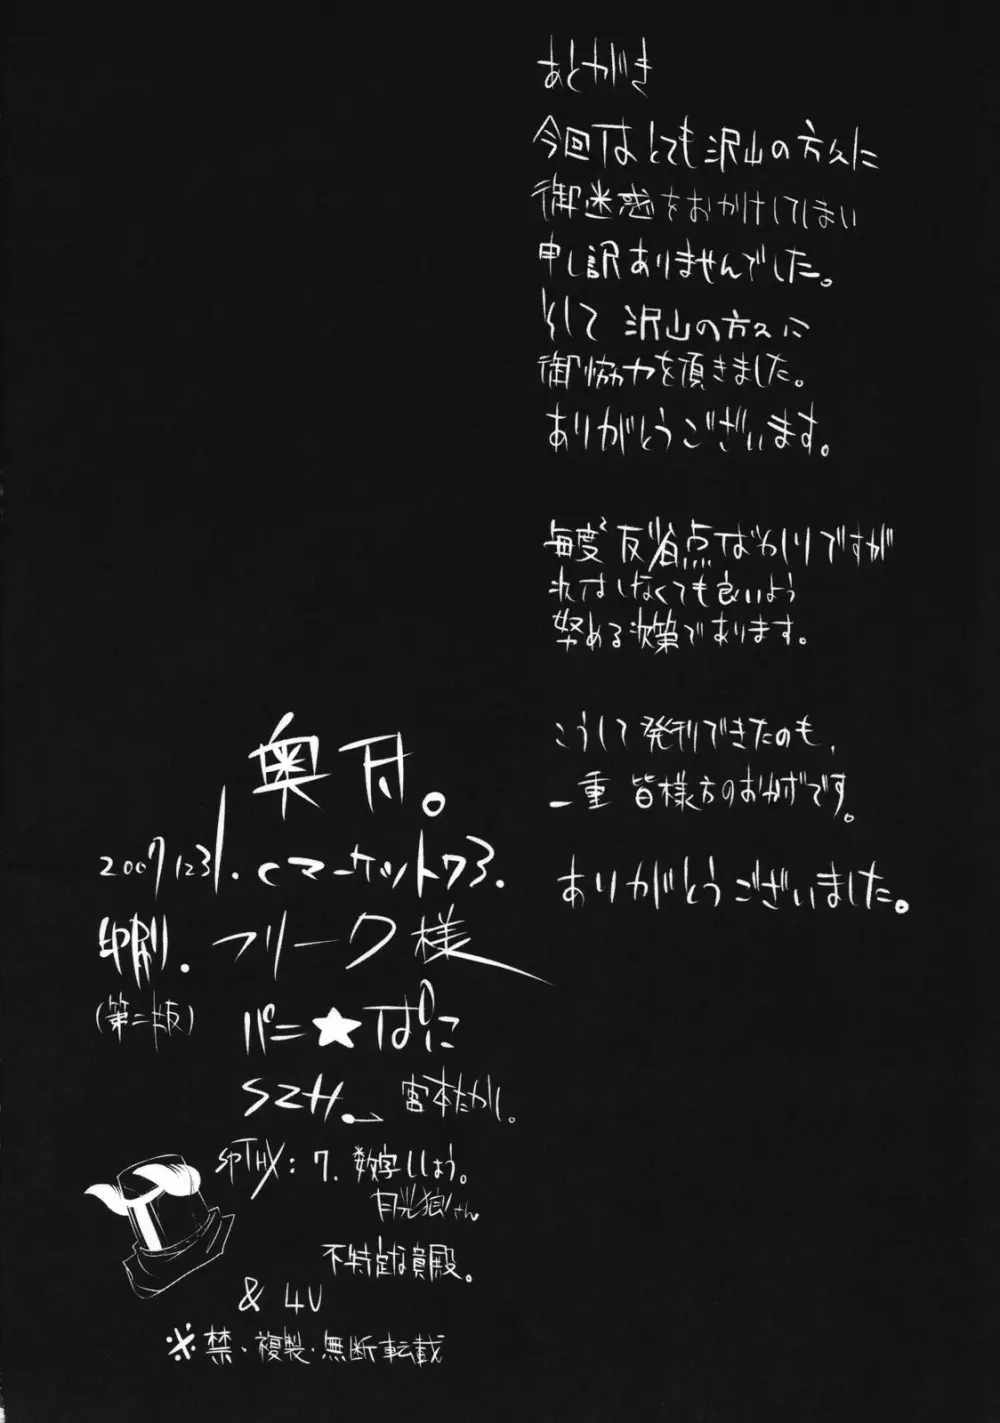 あとがき
今回はとても沢山の方々に
御迷惑をおかけしてしまい
申し訳ありませんでした。
そして 沢山の方々に
御協力を頂きました。
ありがとうございます。
毎度反省点ばかりですが
れはしなくても良いよう
努める次第であります。
こうして発刊できたのも、
一重 皆様方のおかげです。
ありがとうございました。
奥付。
2007 1231. cマーケット73.
印刷. フリーク様
(第二版)
バニ★ぱに
SZH. 宮本たかし。
SPTHX: 7. 数字しょう。
月光狼さん
不特定な員殿。
& 4U
※禁・複製・無断転載